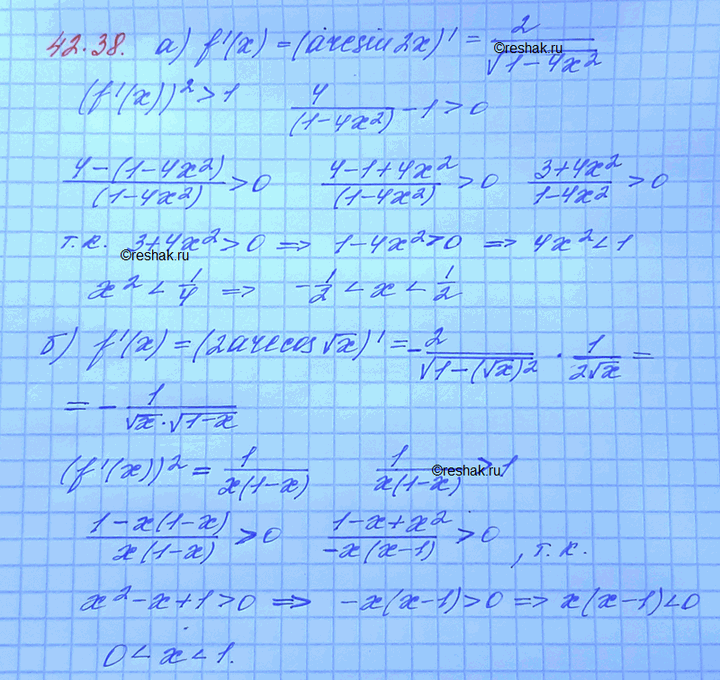 42.38. а) f'(x) = (arcsin 2x)' = 2/√(1-4x²)
©reshak.ru
(f'(x))² > 1   4/(1-4x²) - 1 > 0
(4-(1-4x²))/(1-4x²) > 0   (4-1+4x²)/(1-4x²) > 0   (3+4x²)/(1-4x²) > 0
т.к. 3+4x² > 0 ⇒ 1-4x² > 0 ⇒ 4x² < 1
©reshak.ru
x² < 1/4 ⇒ -1/2 < x < 1/2
б) f'(x) = (2arccos √x)' = -2/√(1-(√x)²) · 1/(2√x) =
= - 1/(√x·√(1-x))
(f'(x))² = 1/(x(1-x))   1/(x(1-x)) > 1
©reshak.ru
(1-x(1-x))/(x(1-x)) > 0   (1-x+x²)/(-x(x-1)) > 0, т.к.
x²-x+1 > 0 ⇒ -x(x-1) > 0 ⇒ x(x-1) < 0
0 < x < 1.